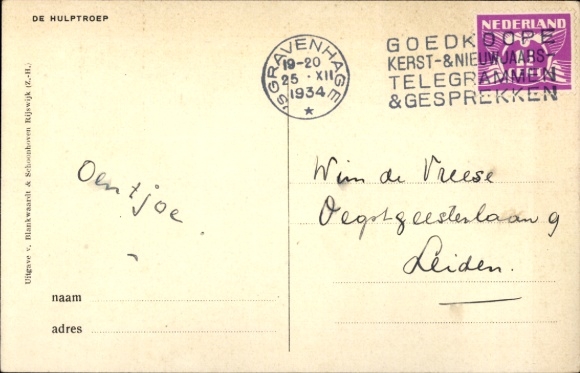 DE HULPTROEP
'S GRAVENHAGE
19-20
25 · XII
1934
GOEDKOOPE
KERST- & NIEUWJAARS-
TELEGRAMMEN
& GESPREKKEN
NEDERLAND
Uitgave v. Blankwaardt & Schoonhoven Rijswijk (Z.-H.)
Oentjoe.
naam
adres
Wim de Vreese
Oegstgeesterlaan 9
Leiden.